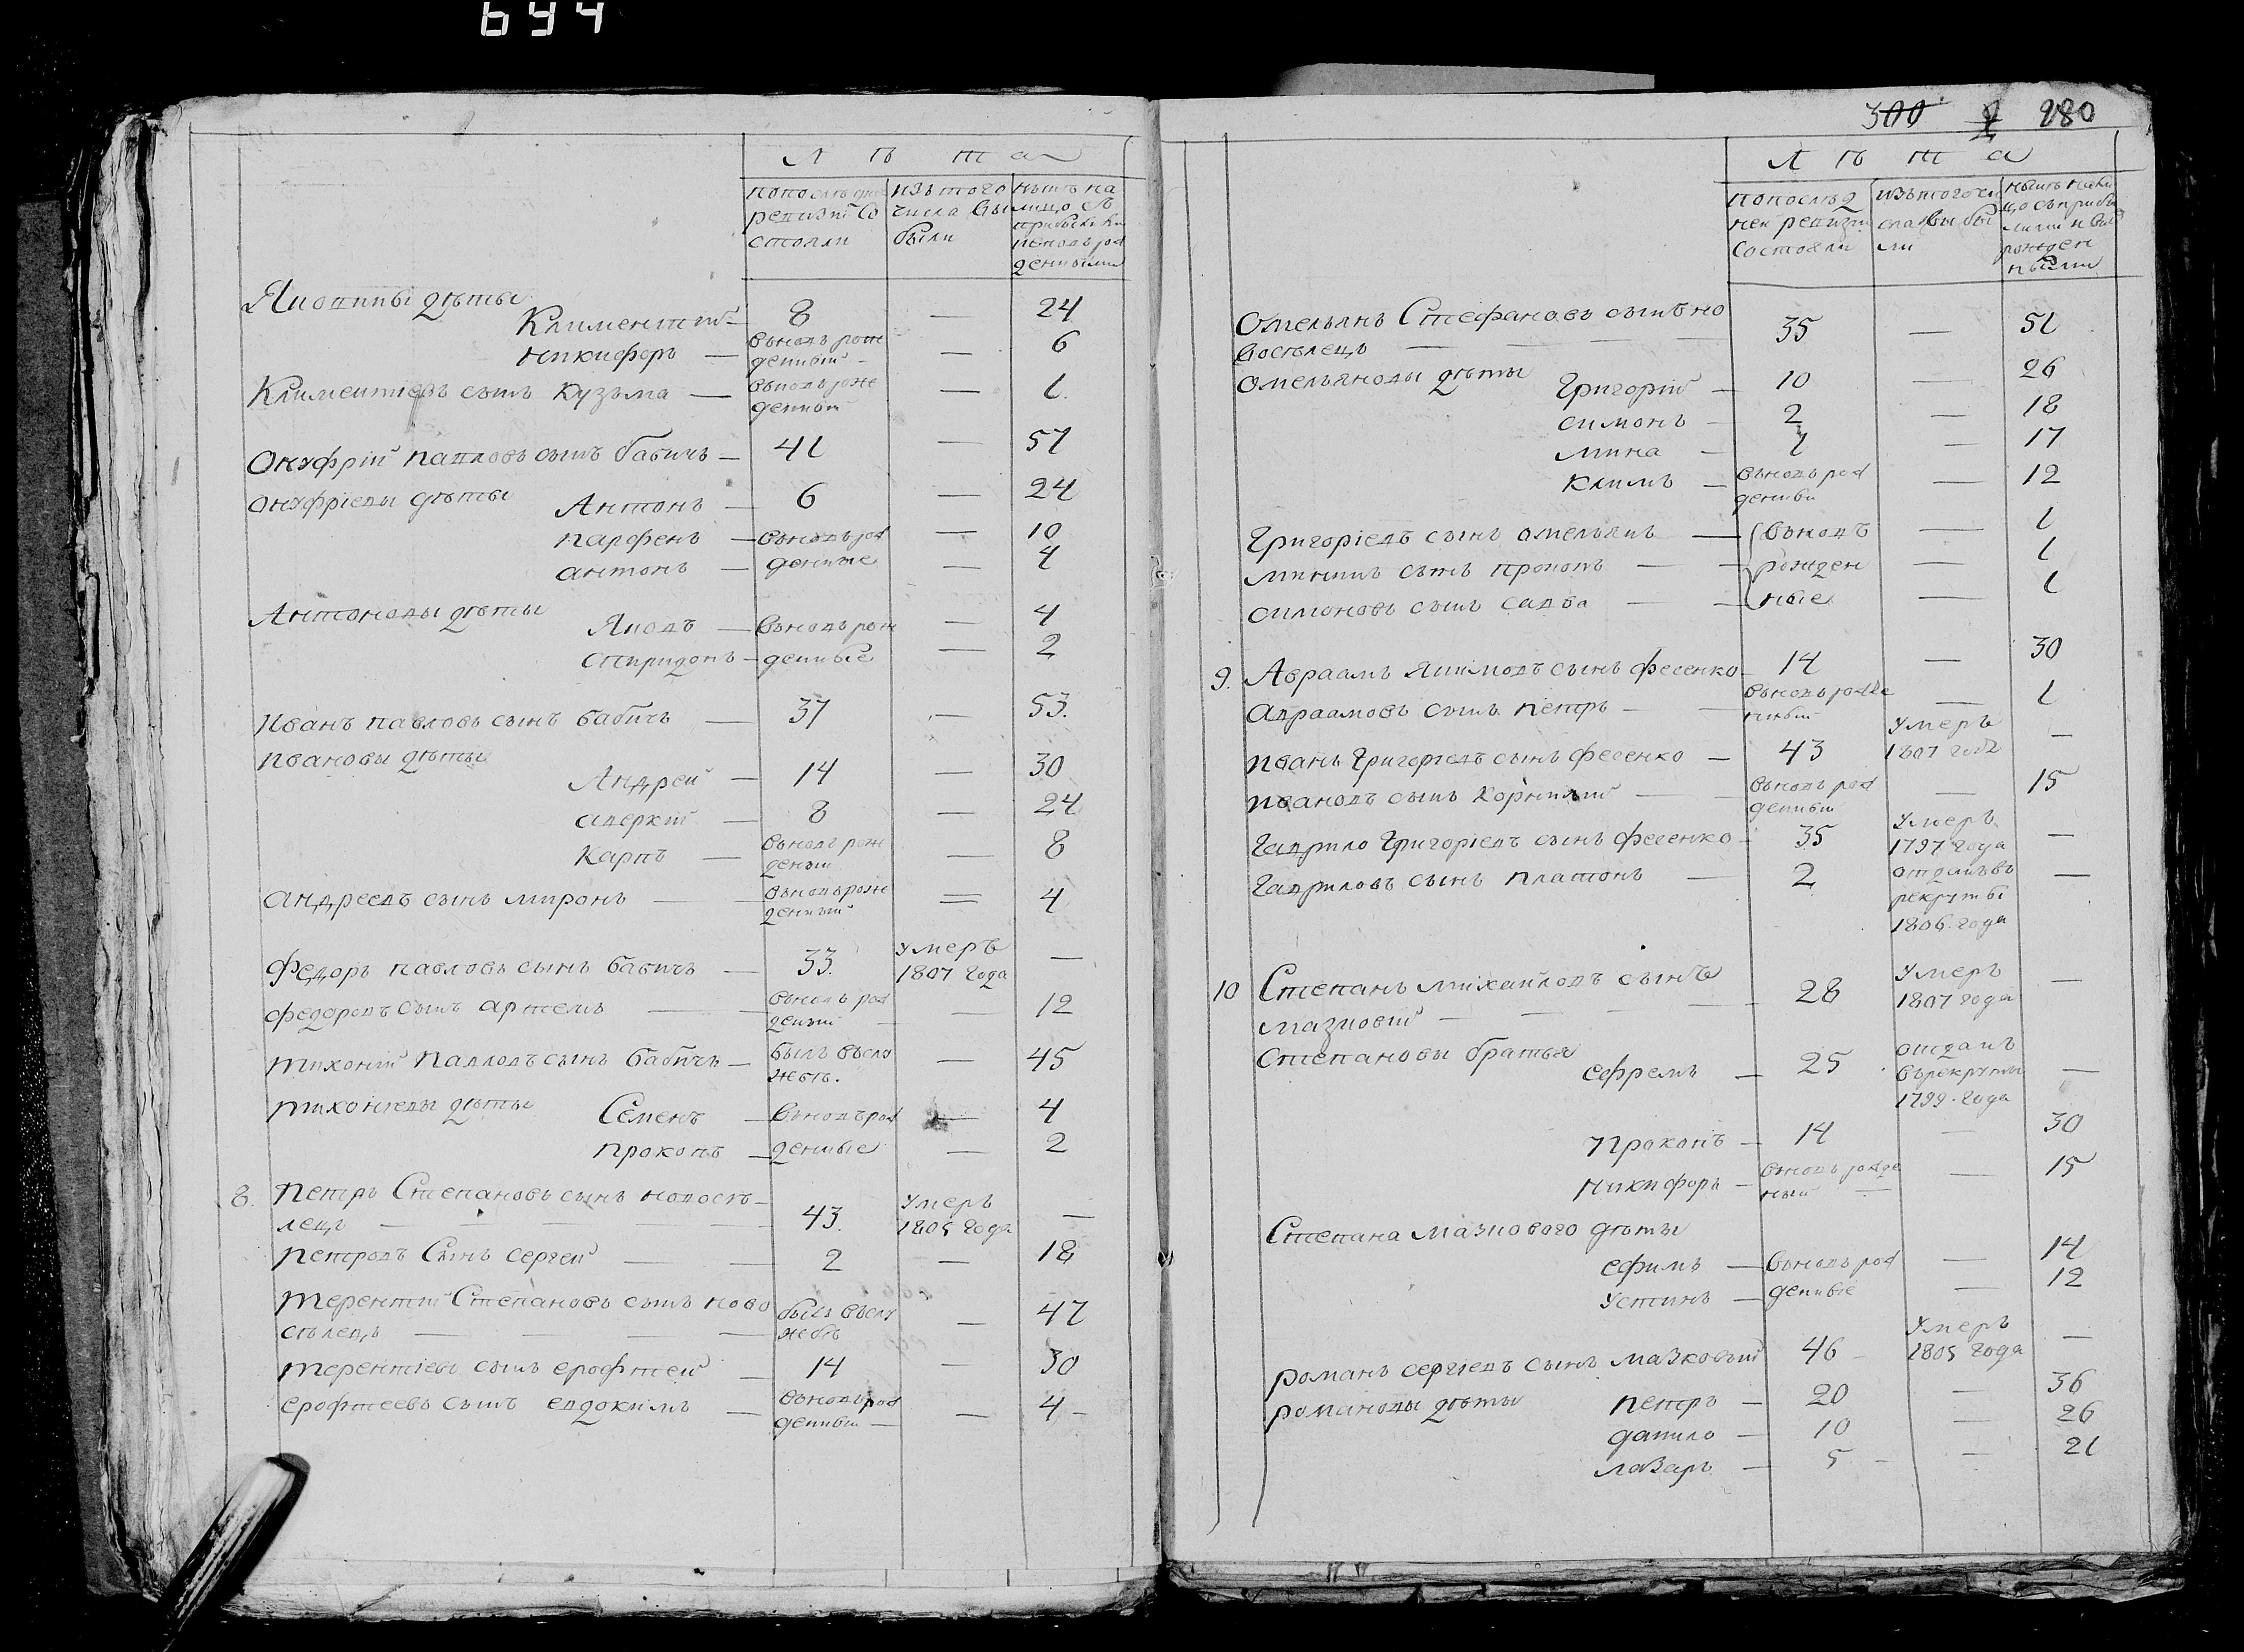 694
Л ѣ т а
попослѣдней ревизіи со стояли
изъ того числа вы были
нынѣ на лицо съ прибылыми и вновь рож денными
Яковлевы дѣти
Климентій — 8 — 24
никифоръ — вновь рож денный — 6
Климентіевъ сынъ Кузьма — вновь рож денный — 1.
Онуфрій павловъ сынъ бабичь — 41 — 57
онуфріевы дѣти
Антонъ — 6 — 24
парфенъ — вновь рож — 10
антонъ — денные — 4
Антоновы дѣти
Яковъ — вновь рож — 4
спиридонъ — денные — 2
Иванъ павловъ сынъ бабичь — 37 — 53.
Ивановы дѣти
Андрей — 14 — 30
аверкій — 8 — 24
Карпъ — вновь рож денный — 8
андреевъ сынъ миронъ — вновь рож денный — 4
Федоръ павловъ сынъ бабичь — 33. умеръ 1807 года —
федоровъ сынъ артемъ — вновь рож денный — 12
тихоній павловъ сынъ бабичь — былъ въслу жбѣ. — 45
тихоніевы дѣти
Семенъ — вновь рож — 4
прокопъ — денные — 2
8. петръ Степановъ сынъ новосѣ
лецъ — 43. умеръ 1805 года —
петровъ Сынъ сергей — 2 — 18
терентій Степановъ сынъ ново
сѣлецъ — былъ въслу жбѣ — 47
терентіевъ сынъ ерофтей — 14 — 30
ерофтеевъ сынъ евдокимъ — вновь рож денный — 4 —
300 280
Л ѣ т а
попослѣд ней ревизіи состояли
изътого чи сла вы бы ли
нынѣ нали цо съ прибы лыми и вновь рожден ными
Омельянъ Стефановъ сынъ но
восѣлецъ — 35 — 51
омельяновы дѣти
Григорій — 10 — 26
симонъ — 2 — 18
мина — 1 — 17
климъ — вновь рож денный — 12
Григоріевъ сынъ омельянъ — вновь — 1
мининъ сынъ прокопъ — рожден — 1
симоновъ сынъ савва — ные — 1
9. Авраамъ якимовъ сынъ фесенко — 14 — 30
авраамовъ сынъ петръ — вновь рожде нный — 1
иванъ Григоріевъ сынъ фесенко — 43 умеръ 1807 года —
ивановъ сынъ корнилій — вновь рож денный — 15
Гаврило Григоріевъ сынъ фесенко — 35 умеръ 1797 года —
Гавриловъ сынъ платонъ — 2 отданъ въ рекруты 1806. года —
10 Степанъ михайловъ сынъ
мазновій — 28 умеръ 1807 года —
степановы братья
ефремъ — 25 отданъ върекруты 1799. года —
Проконъ — 14 — 30
никифоръ — вновь рожде ный — 15
Степана мазнового дѣти
ефимъ — вновь рож — 14
устинъ — денные — 12
романъ сергіевъ сынъ мазковый 46 — умеръ 1805 года —
романовы дѣти
петръ — 20 — 36
данило — 10 26
лазарь — 5 — 21